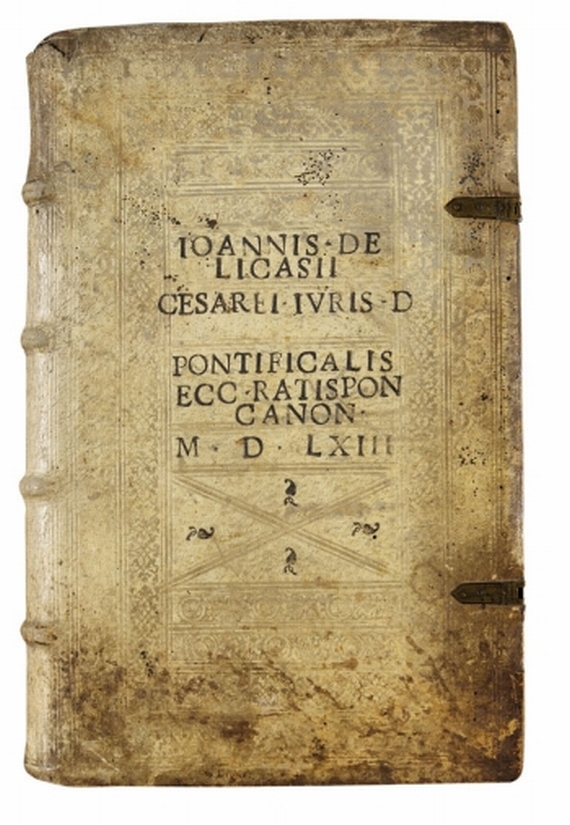 IOANNIS·DE
LICASII
CESAREI·IVRIS·D
PONTIFICALIS
ECC·RATISPON
CANON·
M·D·LXIII